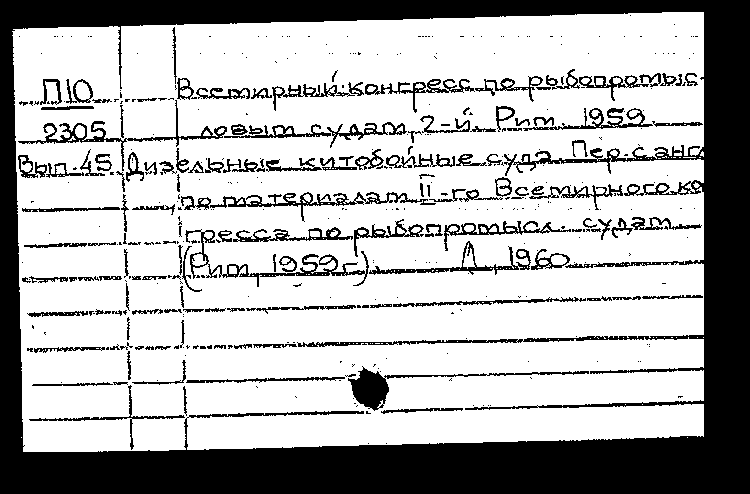 П10 Всемирный конгресс по рыбопромыс-
2305 ловым судам, 2-й. Рим. 1959.
Вып.45 Дизельные китобойные суда. Пер. с англ
по материалам II-го Всемирного ко
гресса по рыбопромысл. судам
(Рим, 1959г.). Л., 1960